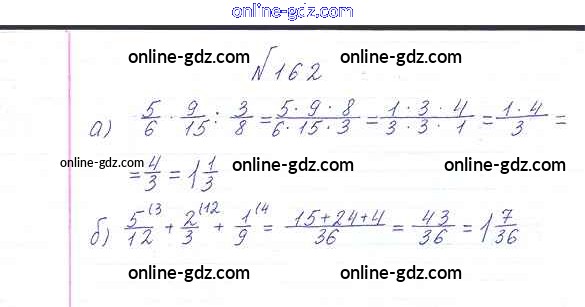 online-gdz.com
online-gdz.com online-gdz.com
№162
а) 5/6 · 9/15 : 3/8 = 5·9·8/6·15·3 = 1·3·4/3·3·1 = 1·4/3 =
online-gdz.com = 4/3 = 1 1/3 online-gdz.com online-gdz.com
б) 5/12 (3 + 2/3 (12 + 1/9 (4 = 15+24+4/36 = 43/36 = 1 7/36
online-gdz.com online-gdz.com